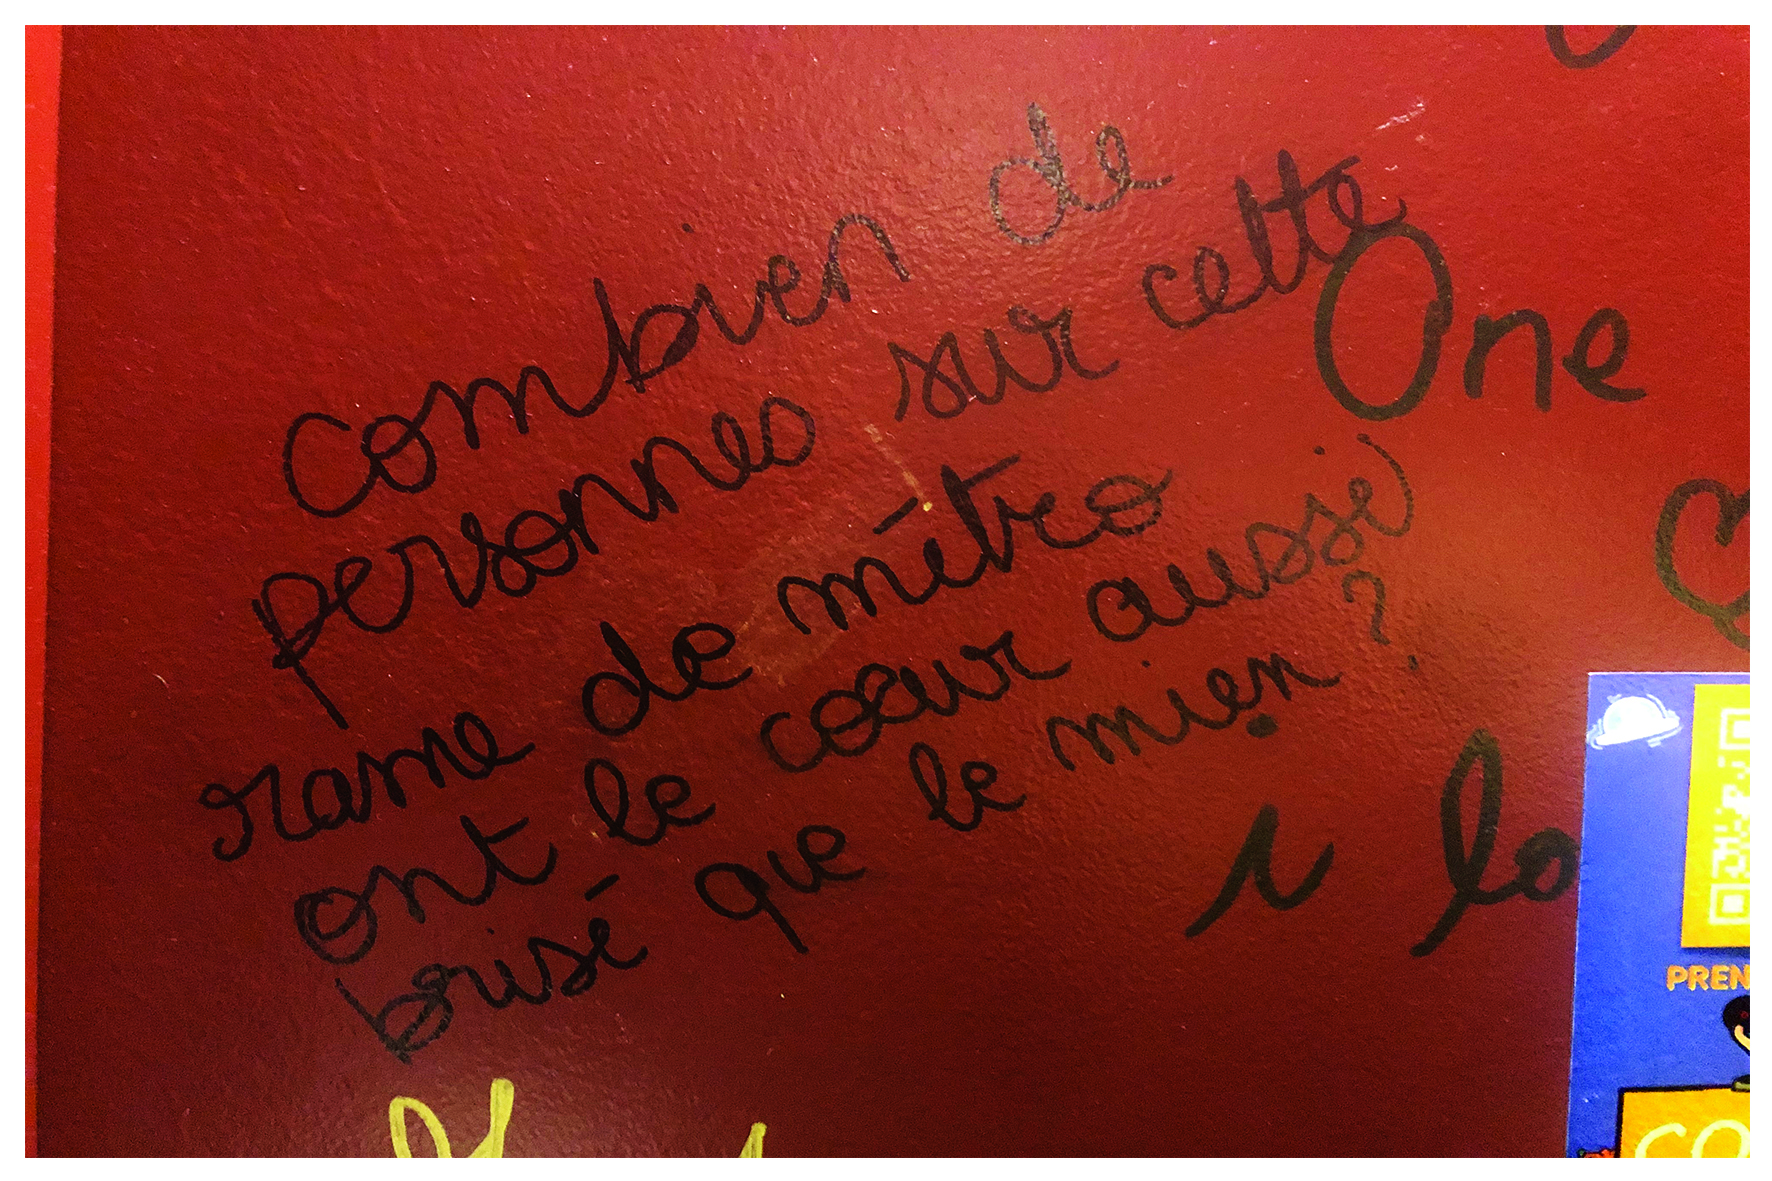 combien de
personnes sur cette
One
rame de métro
ont le cœur aussi
brisé que le mien ?
lo
PREN
CO